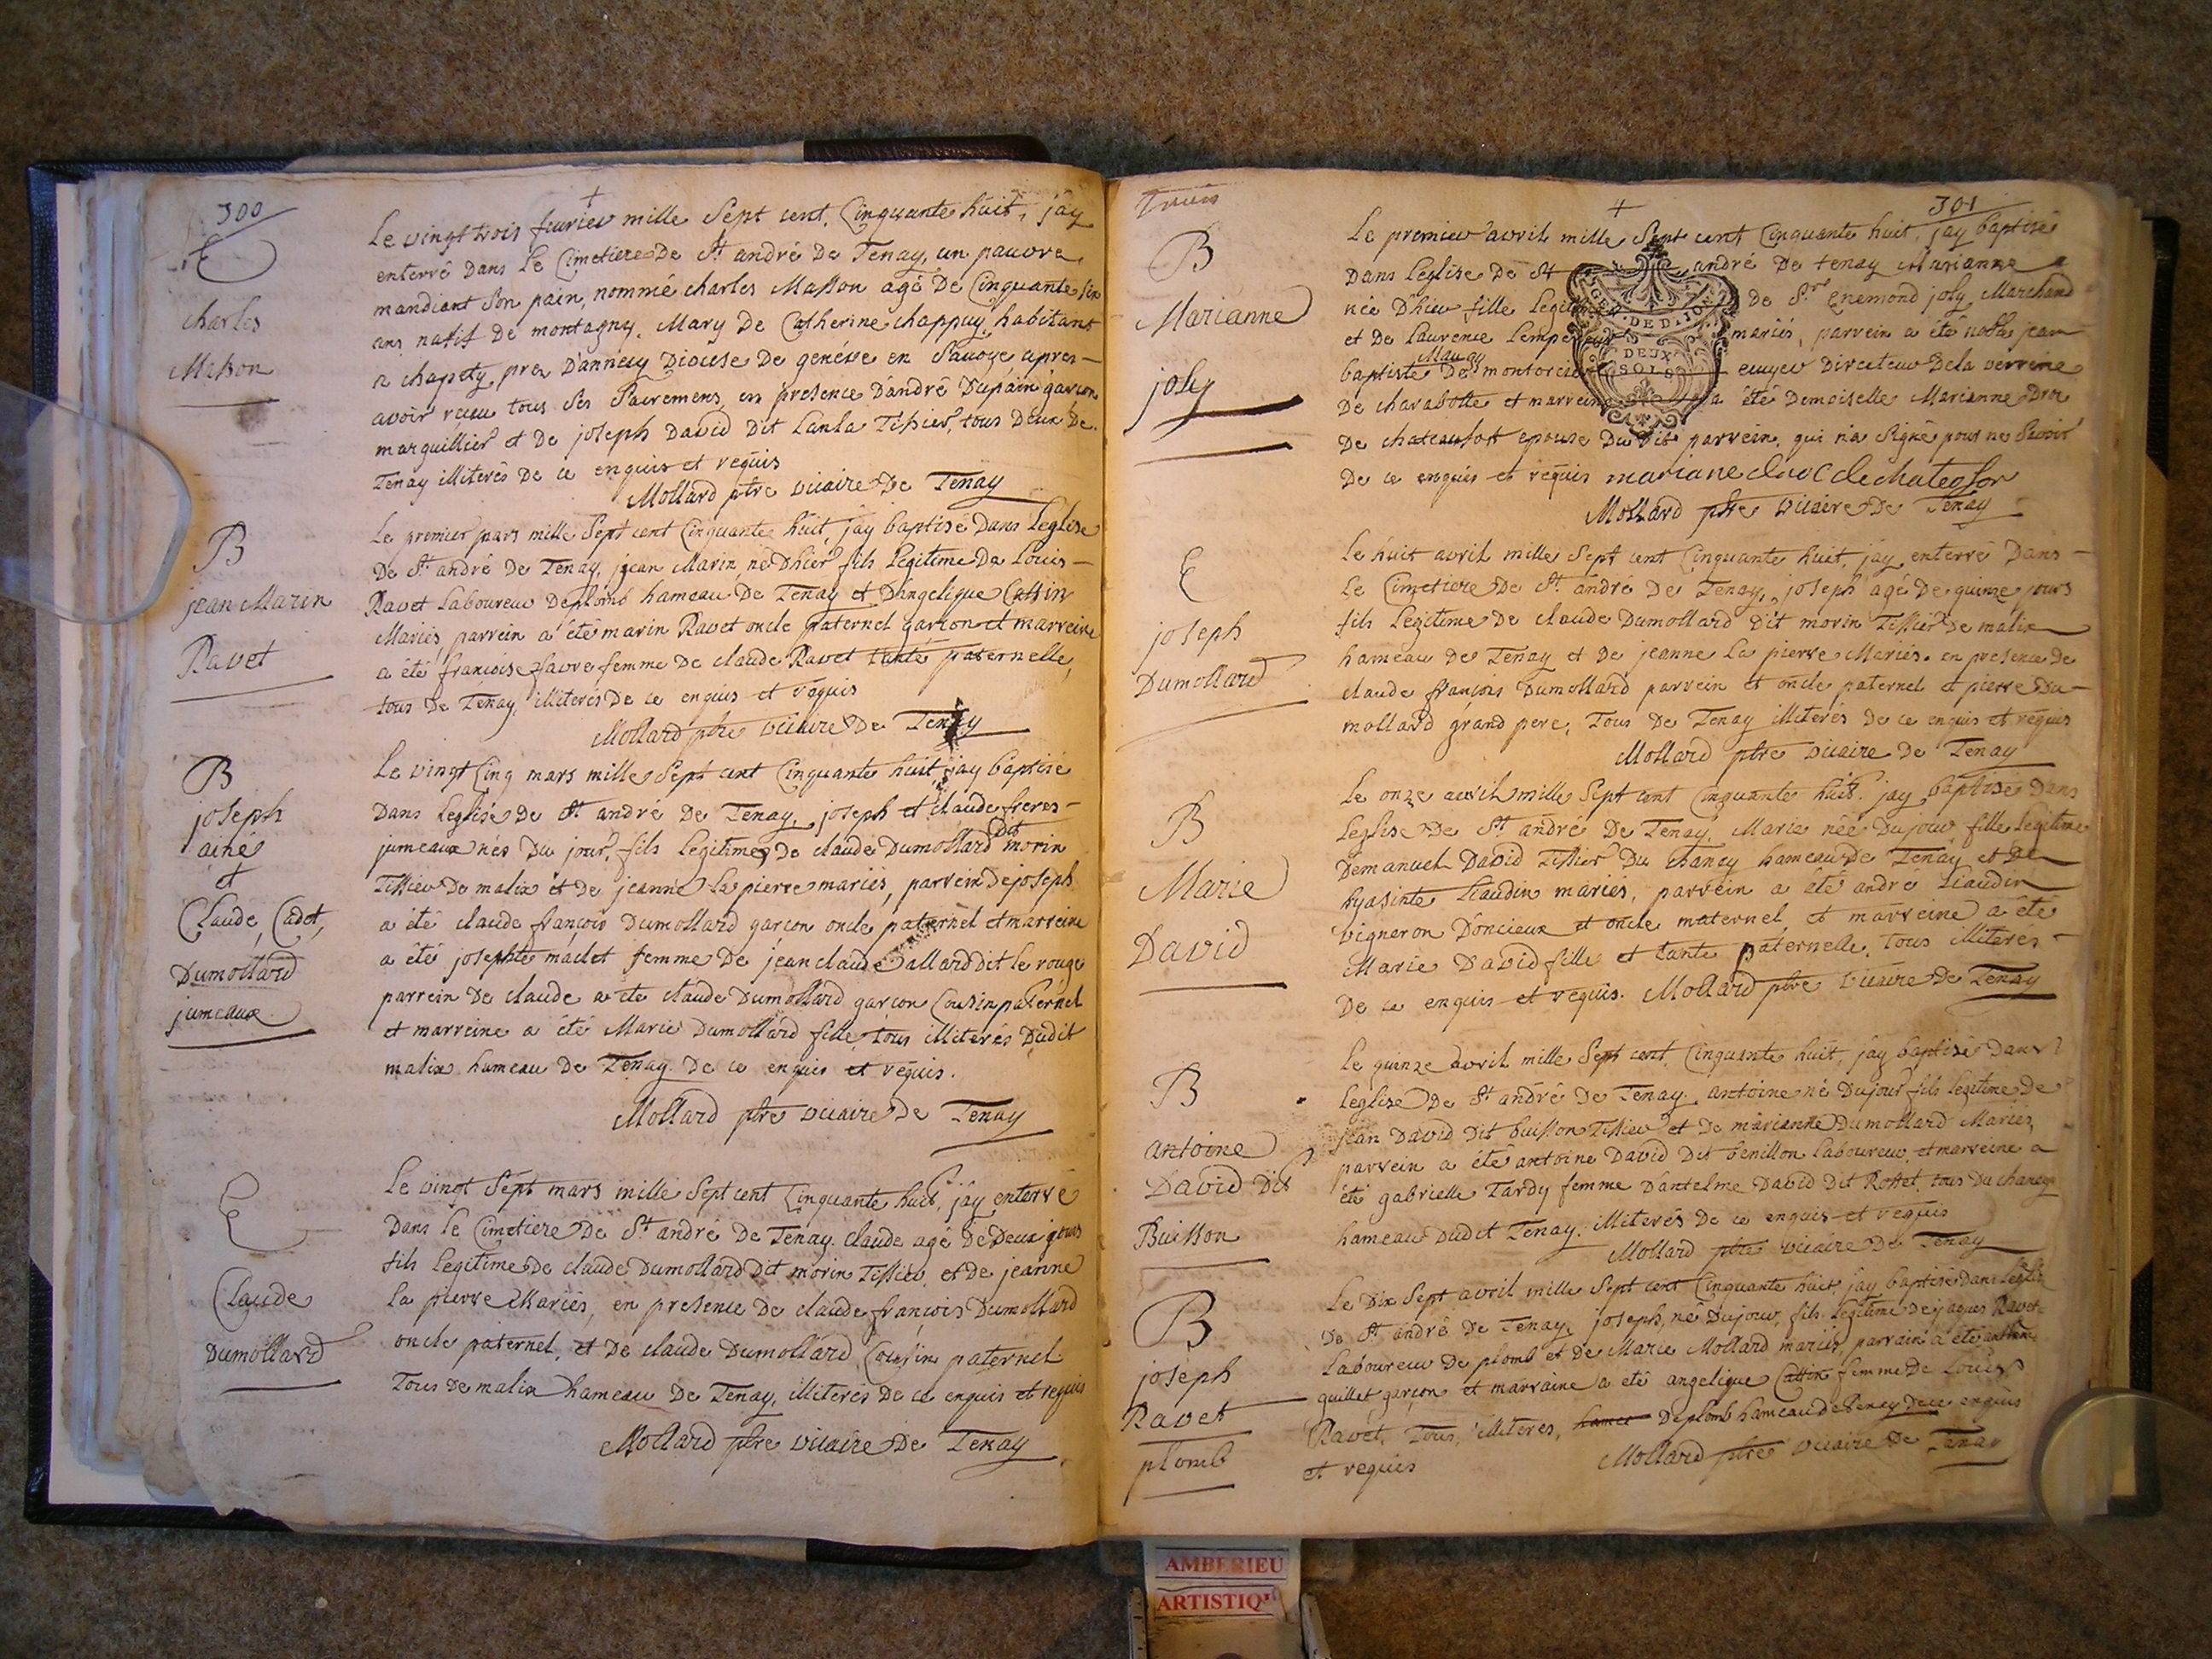 300
+
E
charles
Masson
Le vingt trois fevrier mille Sept cent Cinquante huit, jäy
enterré Dans le Cimetiere De St andré De Tenay, un pauvre
mandiant Son pain, nommé charles Masson agé De Cinquante six
ans natif de montagny, Mary De Catherine chappuy, habitant
a chapety, prez D'annecy Diocese De genéve en Savoye apres
avoir reçeu tous Ses Sacremens, en presence D'andré Dupain garcon
marguillier et De joseph David Dit Lanla Tissier, tous Deux De
Tenay illiterés De ce enquis et requis
Mollard ptre vicaire De Tenay
B
jean Marin
Ravet
Le premier mars mille Sept cent Cinquante huit, jay baptisé Dans Leglise
De St andré De Tenay, jean Marin né D'hier fils Legitime De Louis
Ravet Laboureur De plomb hameau De Tenay et D'angelique Cattin
Mariés, parrein a été marin Ravet oncle paternel garcon et marreine
a été francoise favre femme De claude Ravet tante paternelle,
tous De Tenay, illiterés De ce enquis et requis
Mollard ptre vicaire De Tenay
B
joseph
ainé
et
Claude, Cadet,
Dumollard
jumeaux
Le vingt Cinq mars mille Sept cent Cinquante huit jay baptisé
Dans Leglise De St andré De Tenay, joseph et claude freres
jumeaux nés Du jour, fils Legitimes De claude Dumollard dit morin
Tissier De malix et De jeanne La pierre mariés, parrein De joseph
a été claude françois Dumollard garcon oncle paternel et marreine
a été josephte maclet femme De jean claude allard Dit le rouge
parrein De claude a ete claude Dumollard garcon Cousin paternel
et marreine a été Marie Dumollard fille, tous illiterés Dudit
malix hameau De Tenay De ce enquis et requis.
Mollard ptre vicaire De Tenay
E
Claude
Dumollard
Le vingt Sept mars mille Sept cent Cinquante huit, jäy enterré
Dans le Cimetiere De St andré De Tenay claude agé De Deux jours
fils Legitime De claude Dumollard Dit morin Tissier et De jeanne
La pierre Mariés, en presence De claude françois Dumollard
oncle paternel, et De claude Dumollard Cousin paternel
Tous De malix hameau De Tenay, illiterés De ce enquis et requis
Mollard ptre vicaire De Tenay
301
+
B
Marianne
joly
Le premier avril mille Sept cent Cinquante huit, jay baptisé
Dans Leglise De St andré De tenay Marianne
née D'hier fille Legitime de Sr Enemond joly, Marchand
et De Laurence Lempereur mariés, parrein a été noble jean
baptiste Maugy De montorcier ecuyer Directeur De la verrerie
De charabotte et marreine a été Demoiselle Marianne Droc
De chateaufort epouse Du Dit parrein, qui n'a Signé pour ne Savoir
De ce enquis et requis mariane duoc de chatefor
Mollard ptre vicaire De Tenay
GEN. DE DIJON
DEUX
SOLS
E
joseph
Dumollard
Le huit avril mille Sept cent Cinquante huit, jay enterré Dans
Le Cimetiere De St andré De Tenay, joseph agé De quinze jours
fils Legitime De claude Dumollard Dit morin Tissier De malix
hameau De Tenay et De jeanne La pierre Mariés. en presence De
claude françois Dumollard parrein et oncle paternel et pierre Du
mollard grand pere, Tous De Tenay illiterés De ce enquis et requis
Mollard ptre vicaire De Tenay
B
Marie
David
Le onze avril mille Sept cent Cinquante huit. jay baptisé Dans
Leglise De St andré De Tenay, Marie née Du jour fille Legitime
Demanuel David Tissier Du chaney hameau De Tenay et De
hyasinte Liaudin mariés, parrein a été andré Liaudin
vigneron D'oncieux et oncle maternel et marreine a été
Marie David fille et tante paternelle, tous illiterés
De ce enquis et requis. Mollard ptre vicaire De Tenay
B
antoine
David Dit
Buisson
Le quinze avril mille Sept cent Cinquante huit, jay baptisé Dans
Leglise De St andré De Tenay, antoine né Du jour fils Legitime de
jean David Dit buisson Tissier et De marianne Dumollard Mariés,
parrein a été antoine David Dit benillon laboureur, et marreine a
été gabrielle Tardy femme D'antelme David Dit Rottet tous Du chaney
hameau Dudit Tenay. illiterés De ce enquis et requis
Mollard ptre vicaire De Tenay
B
joseph
Ravet
plomb
Le Dix Sept avril mille Sept cent Cinquante huit, jay baptisé Dans Leglise
De St andré De Tenay, joseph, né Du jour, fils Legitime De jaques Ravet
Laboureur De plomb et De Marie Mollard mariés, parrain a été
quillet garcon et marraine a été angelique Cattin femme De Louis
Ravet, Tous, illiteres, De plomb hameau de Tenay De ce enquis
et requis
Mollard ptre vicaire De Tenay
AMBERIEU
ARTISTIQU